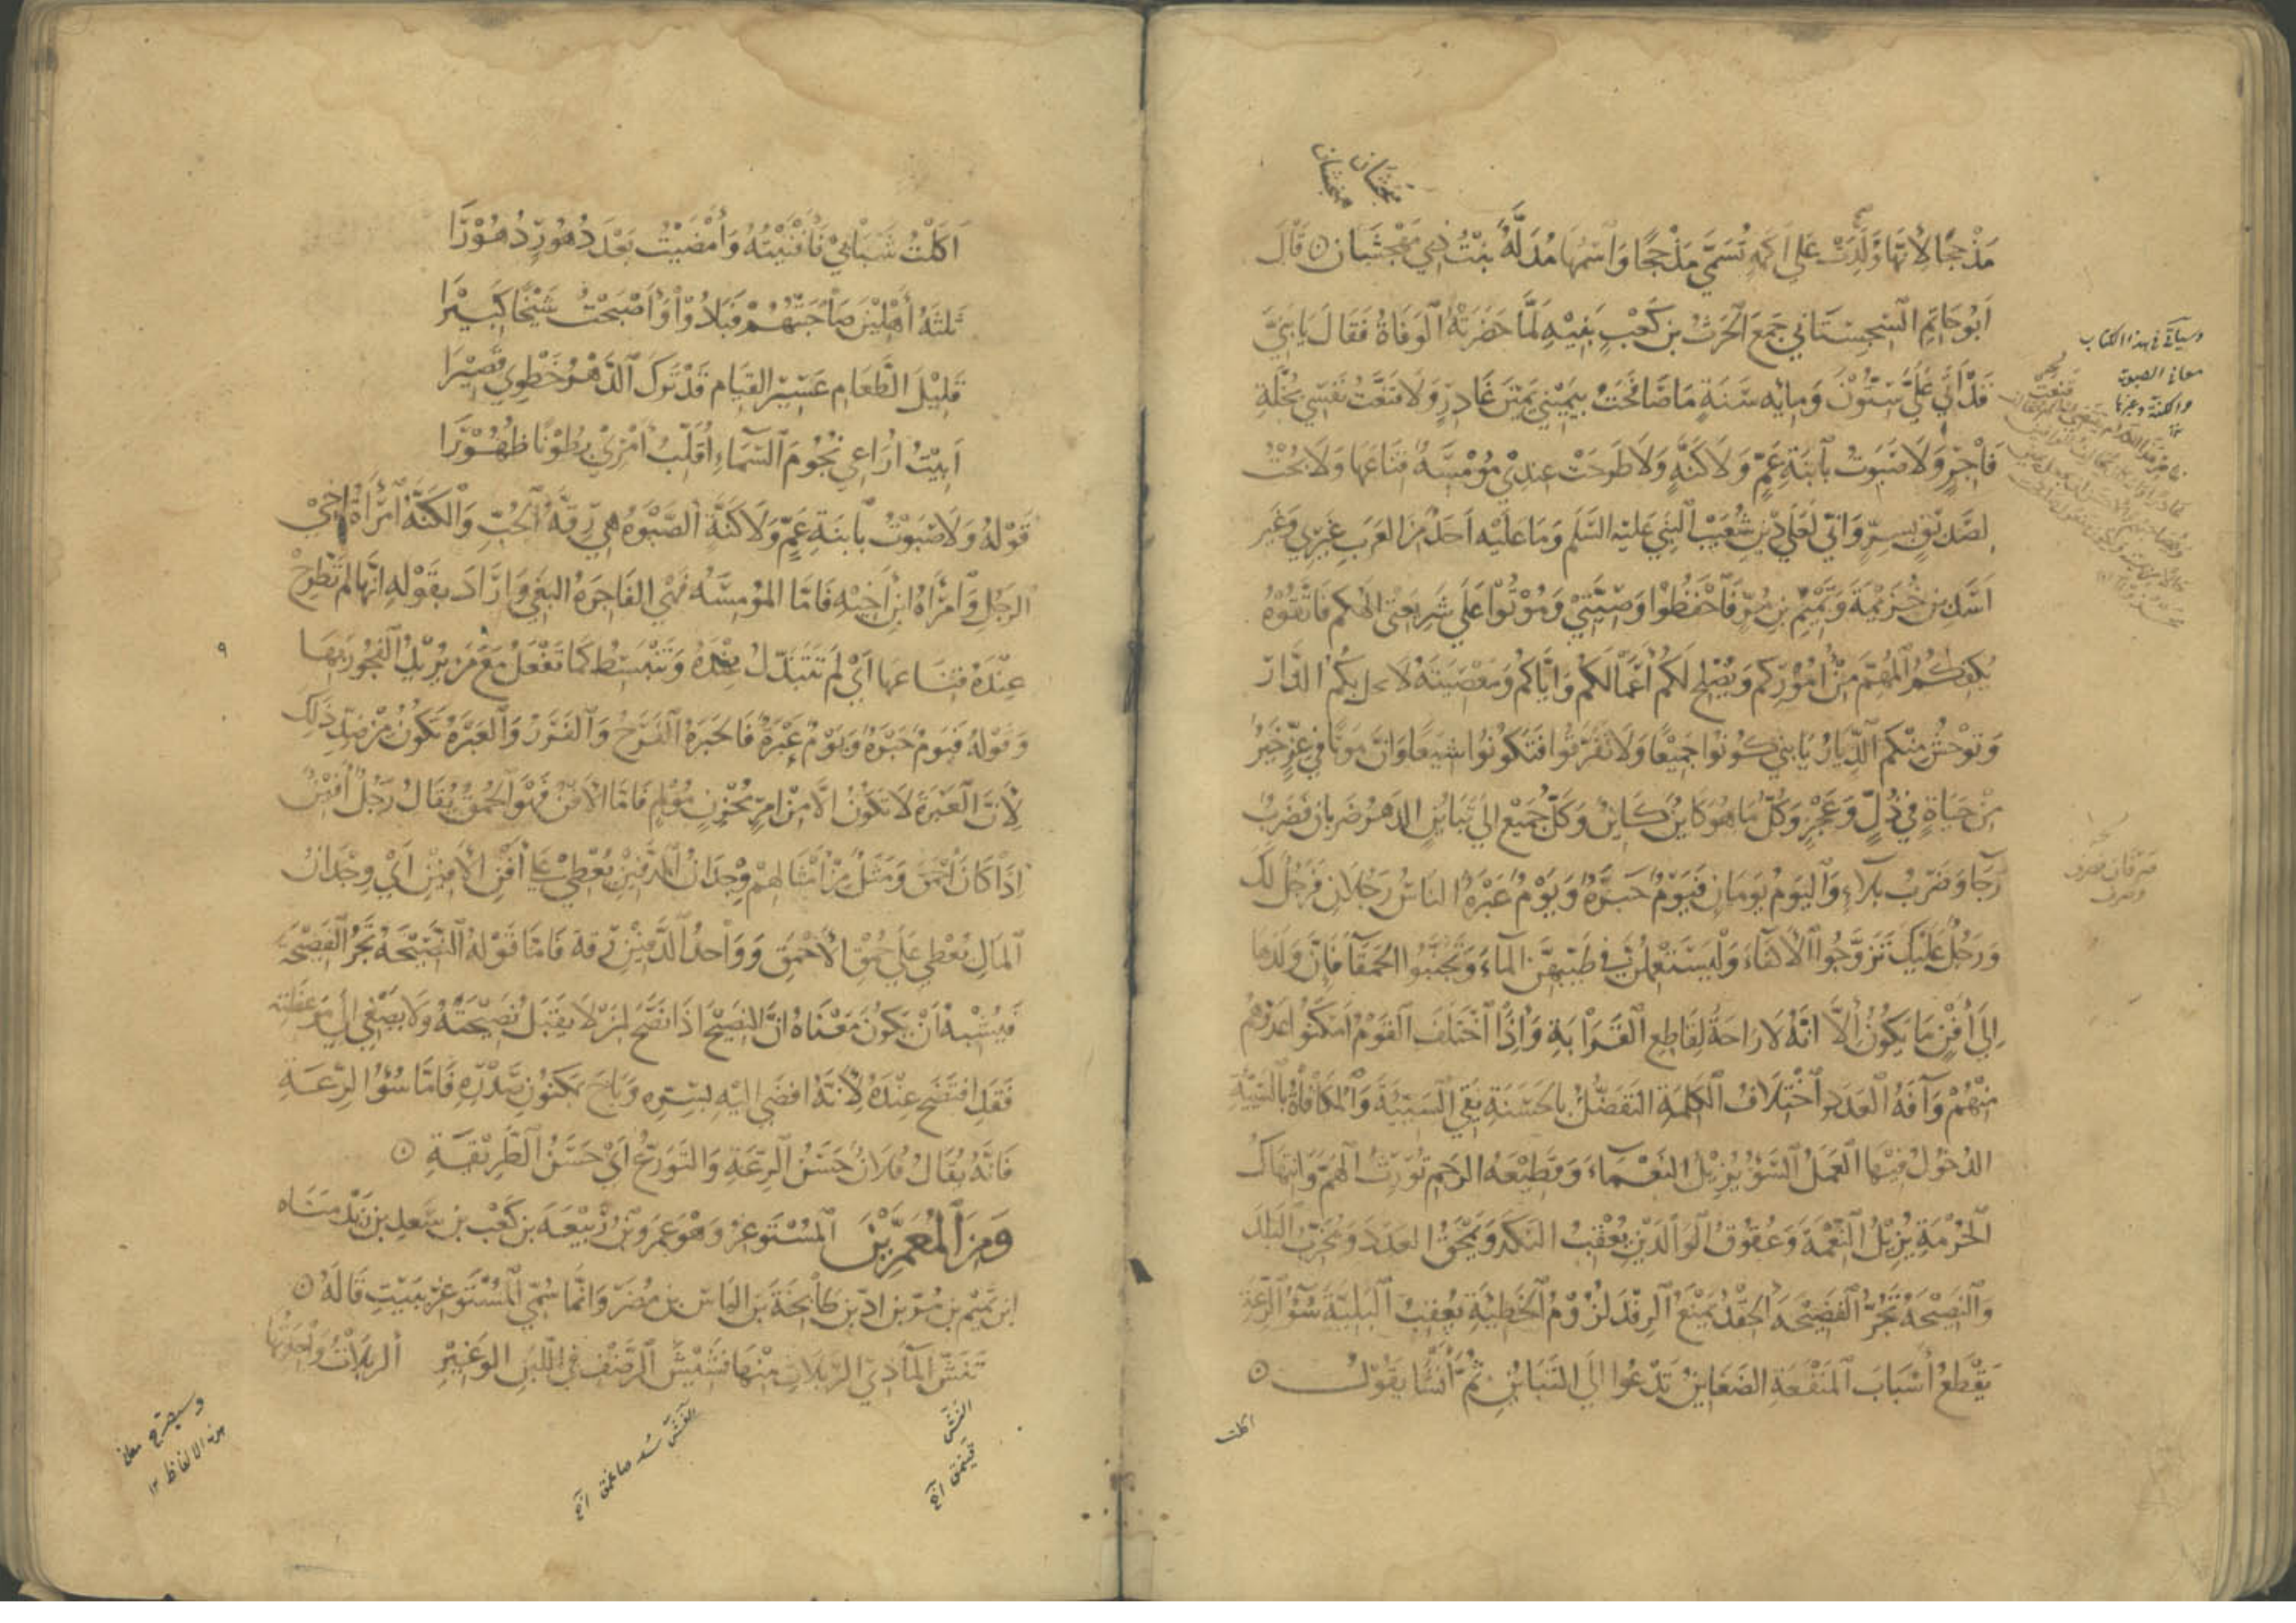 منجشان
منجشان
مَذْحِجًا لأنها وُلِدَت على أكمة تُسمَّى مَذحجا واسمها مُدِلَّة بنت ذي منجشان ۞ قال
ابو حاتم السجستاني جمع الحرث بن كعب بنيه لما حضرته الوفاة فقال يا بنيَّ
قد أتى عليَّ ستون وماية سنة ما صافحت بيميني يمين غادر ولا قنعت نفسي بخلة
فاجر ولا صبوت بابنة عم ولا كنة ولا طرحت عندي مومسة قناعها ولا بحت
لصديق بسر واني لعلى دين شعيب النبي عليه السلم وما عليه احد من العرب غيري وغير
اسد بن خزيمة وتميم بن مر فاحفظوا وصيتي وموتوا على شريعتي الهكم فاتقوه
يكفكم المهم من اموركم ويصلح لكم اعمالكم واياكم ومعصيته لا يحل بكم الدمار
وتوحش منكم الديار يا بني كونوا جميعا ولا تفرقوا فتكونوا شيعا وان موتا في عز خير
من حياة في ذل وعجز وكل ما هو كاين كاين وكل جميع الى تباين الدهر ضربان فضرب
رجا وضرب بلاء واليوم يومان فيوم حبرة ويوم عبرة الناس رجلان فرجل لك
ورجل عليك تزوجوا الاكفاء وليستعملن في طيبهن الماء وتجنبوا الحمقا فان ولدها
الى أفن ما يكون ألا انه لا راحة لقاطع القرابة واذا اختلف القوم امكنوا عدوهم
منهم وآفة العدد اختلاف الكلمة التفضل بالحسنة يقي السيئة والمكافاة بالسيئة
الدخول فيها العمل السوء يزيل النعماء وقطيعة الرحم تورث الهم وانتهاك
الحرمة يزيل النعمة وعقوق الوالدين يعقب النكد ويمحق العدد ويخرب البلد
والنصيحة تجر الفضيحة الحقد يمنع الرفد لزوم الخطيئة يعقب البلية سوء الرعة
يقطع اسباب المنفعة الضغاين تدعوا الى التباين ثم انشا يقول ۞
اكلت
وسياتي في هذا الكتاب
معاني الصبوة
والكنة وغيرها
اكلت شبابي فافنيته وامضيت بعد دهور دهورا
ثلثة اهلين صاحبتهم فبادوا واصبحت شيخا كبيرا
قليل الطعام عسير القيام قد ترك الدهر خطوي قصيرا
ابيت اراعي نجوم السماء اقلب امري بطونا ظهورا
قوله ولا صبوت بابنة عم ولا كنة الصبوة هي رقة الحب والكنة امراة اخي
الرجل وامراة ابن اخيه فاما المومسة فهي الفاجرة البغي واراد بقوله انها لم تطرح
عنده قناعها اي لم تتبذل عنده وتنبسط كما تفعل مع من يريد الفجور بها
وقوله فيوم حبرة ويوم عبرة فالحبرة الفرح والسرور والعبرة تكون من ضد ذلك
لأن العبرة لا تكون الا من امر محزن مولم فاما الافن فهو الحمق يقال رجل افين
اذا كان احمق ومثل من امثالهم وجدان الرقين يغطي على أفن الأفين اي وجدان
المال يغطي على حمق الاحمق وواحد الرقين رقة فاما قوله النصيحة تجر الفضيحة
فيشبه ان يكون معناه ان النصيح اذا نصح لمن لا يقبل نصيحته ولا يصغي الى موعظته
فقد افتضح عنده لأنه افضى اليه بسره وباح بمكنون صدره فاما سوء الرعة
فانه يقال فلان حسن الرعة والتورع اي حسن الطريقة ۞
ومن المعمرين المستوغر وهو عمرو بن ربيعة بن كعب بن سعد بن زيد مناه
ابن تميم بن مر بن اد بن طابخة بن الياس بن مضر وانما سمي المستوغر ببيت قاله ۞
تنش الماء في الربلات منها نشيش الرضف في اللبن الوغير الربلات واحدتها
وسيشرح معاني
هذه الالفاظ ١٢